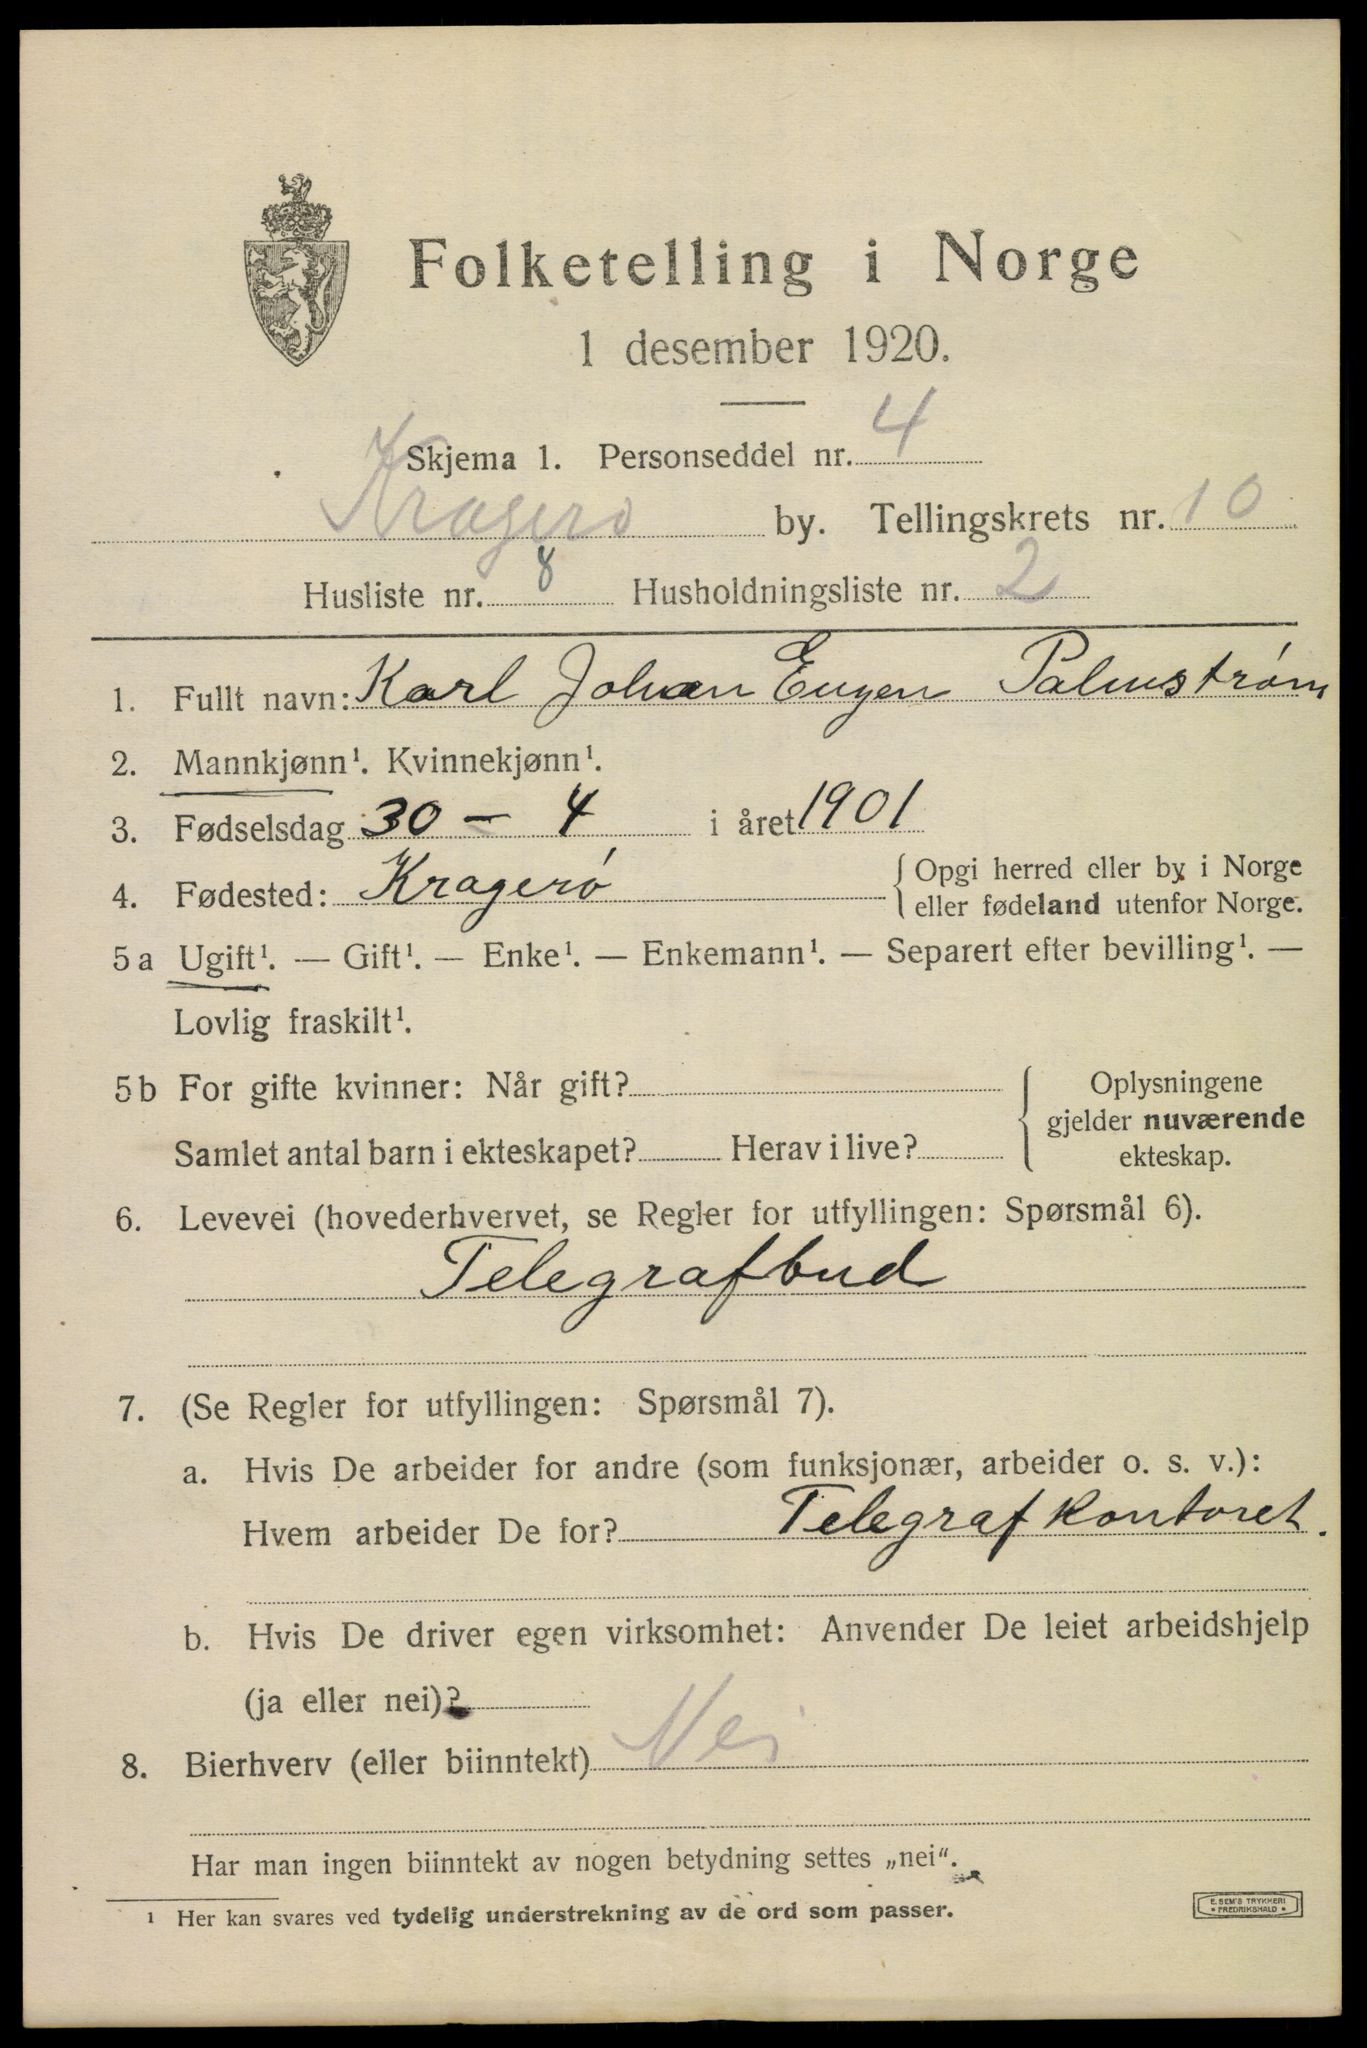 Folketelling i Norge
1 desember 1920.
Skjema 1. Personseddel nr. 4
Kragerø by. Tellingskrets nr. 10
Husliste nr. 8 Husholdningsliste nr. 2
1. Fullt navn: Karl Johan Eugen Palmstrøm
2. Mannkjønn¹. Kvinnekjønn¹.
3. Fødselsdag 30 – 4 i året 1901
4. Fødested: Kragerø { Opgi herred eller by i Norge
eller fødeland utenfor Norge.
5a Ugift¹. — Gift¹. — Enke¹. — Enkemann¹. — Separert efter bevilling¹. —
Lovlig fraskilt¹.
5b For gifte kvinner: Når gift?
Samlet antal barn i ekteskapet? Herav i live?
{ Oplysningene
gjelder nuværende
ekteskap.
6. Levevei (hovederhvervet, se Regler for utfyllingen: Spørsmål 6).
Telegrafbud
7. (Se Regler for utfyllingen: Spørsmål 7).
a. Hvis De arbeider for andre (som funksjonær, arbeider o. s. v.):
Hvem arbeider De for? Telegrafkontoret.
b. Hvis De driver egen virksomhet: Anvender De leiet arbeidshjelp
(ja eller nei)?
8. Bierhverv (eller biinntekt) Nei
Har man ingen biinntekt av nogen betydning settes „nei“.
¹ Her kan svares ved tydelig understrekning av de ord som passer.
E. SEM'S TRYKKERI
• FREDRIKSHALD •